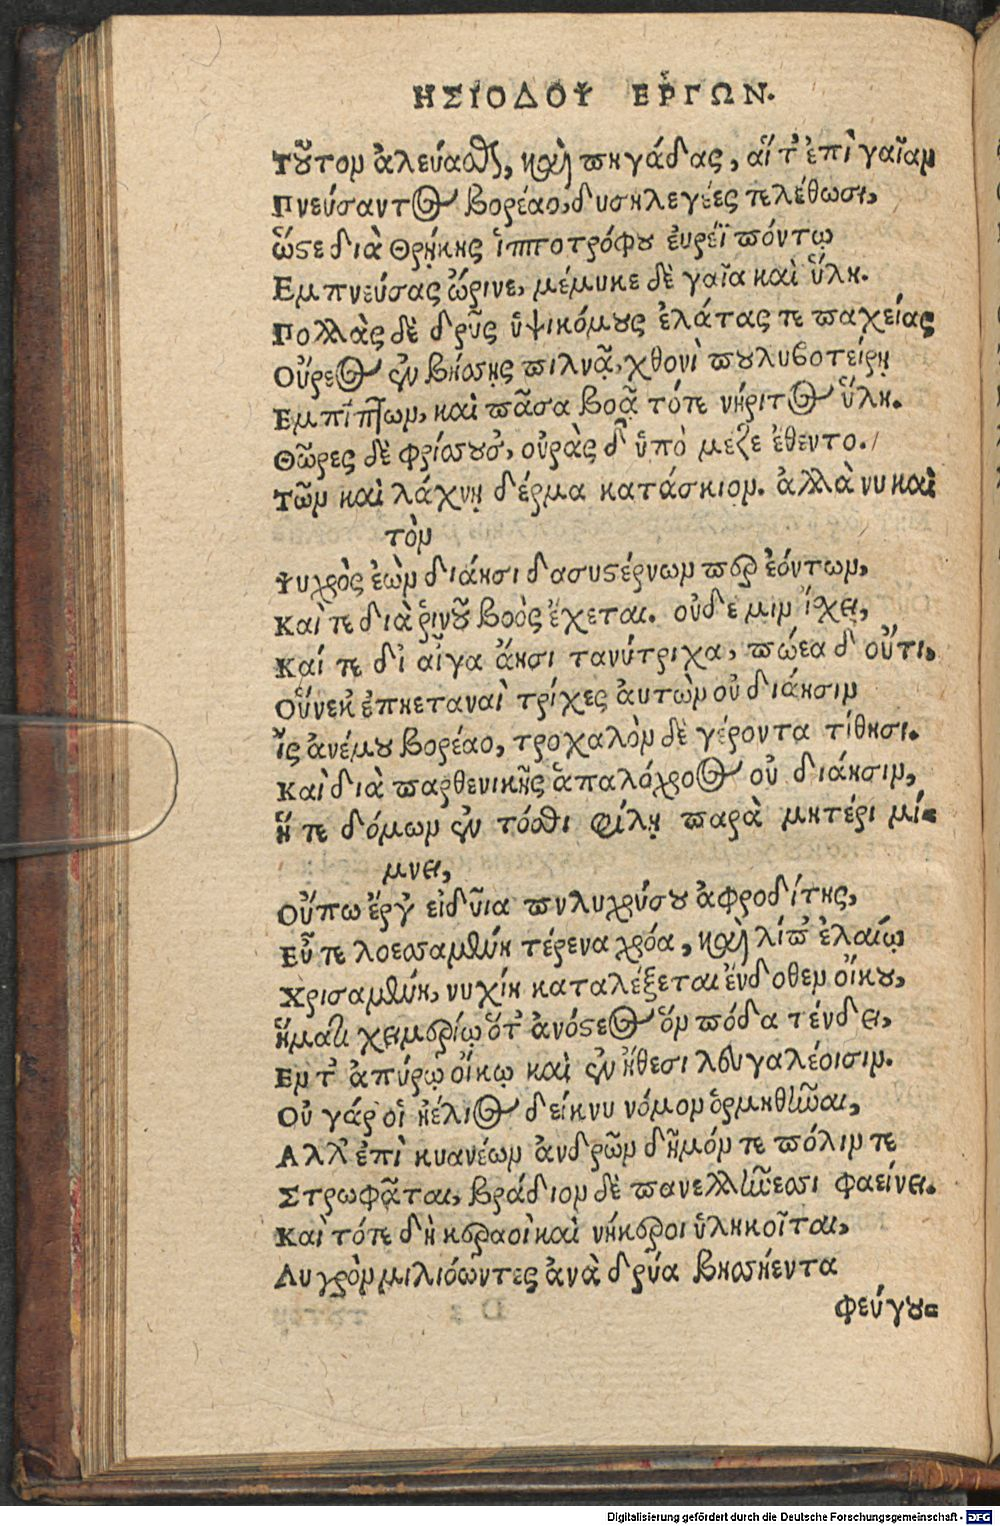 ΗΣΙΟΔΟΥ ΕΡΓΩΝ.
Τοῦτον ἀλεύασθαι, καὶ πηγάδας, αἵ τ' ἐπὶ γαῖαν
Πνεύσαντος βορέαο, δυσηλεγέες τελέθωσι,
ὥστε διὰ Θρῄκης ἱπποτρόφου εὐρέϊ πόντῳ
Εμπνεύσας ὤρινε, μέμυκε δὲ γαῖα καὶ ὕλη.
Πολλὰς δὲ δρῦς ὑψικόμους ἐλάτας τε παχείας
Οὔρεος ἐν βήσσῃς πιλνᾷ, χθονὶ πουλυβοτείρῃ
Εμπίπτων, καὶ πᾶσα βοᾷ τότε νήριτος ὕλη.
Θῶρες δὲ φρίσσουσ', οὐρὰς δ' ὑπὸ μεζε ἔθεντο.
Τῶν καὶ λάχνῃ δέρμα κατάσκιον. ἀλλὰ νυ καὶ
τὸν
Ψυχρὸς ἐὼν διάησι δασυστέρνων περ ἐόντων,
Καί τε διὰ ῥινοῦ βοὸς ἔχεται. οὐδε μιν ἴχει,
Καί τε δι' αἶγα ἄησι τανύτριχα, πώεα δ' οὔτι,
Οὕνεκ' ἐπηεταναὶ τρίχες αυτὼν οὐ διάησιν
ἲς ἀνέμου βορέαο, τροχαλὸν δὲ γέροντα τίθησι.
Καὶ διὰ παρθενικῆς ἁπαλόχροος οὐ διάησιν,
ἥ τε δόμων ἐν τόσθι φίλῃ παρὰ μητέρι μί=
μνει,
Οὔπω ἔργ' εἰδυῖα πυλυχρύσου ἀφροδίτης,
Εὖ τε λοεσσαμένη τέρενα χρόα, καὶ λίπ' ἐλαίῳ
Χρισαμένη, νυχίη καταλέξεται ἔνδοθεν οἴκου,
ἤματι χειμερίῳ ὅτ' ἀνόστεος ὃν πόδα τένδει,
Εν τ' ἀπύρῳ οἴκῳ καὶ ἐν ἤθεσι λευγαλέοισιν.
Οὐ γάρ οἱ ἠέλιος δείκνυ νόμον ὁρμηθῆναι,
Αλλ' ἐπὶ κυανέων ἀνδρῶν δῆμόν τε πόλιν τε
Στρωφᾶται, βράδιον δὲ πανελλήνεσσι φαείνει.
Καὶ τότε δὴ κεραοὶ καὶ νήκεροι ὑληκοῖται,
Λυγρὸν μιλιόωντες ἀνὰ δρύα βησσήεντα
φεύγου=
Digitalisierung gefördert durch die Deutsche Forschungsgemeinschaft - DFG